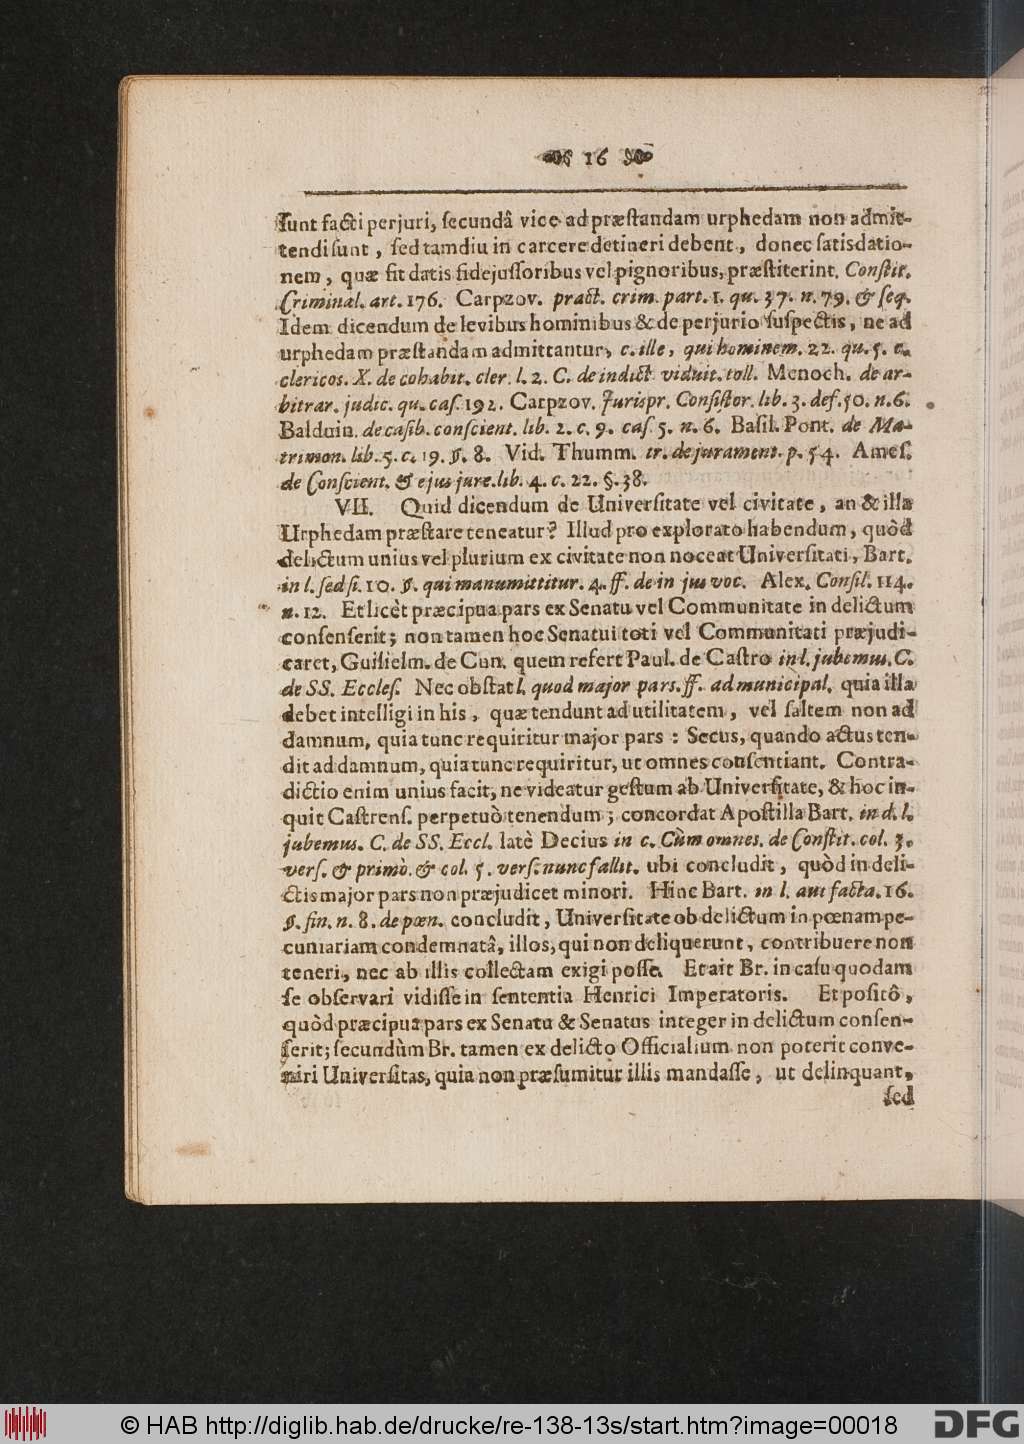 16
sunt facti perjuri, secundâ vice ad præstandam urphedam non admit-
tendi sunt, sed tamdiu in carcere detineri debent, donec satisdatio-
nem, quæ fit datis fidejussoribus vel pignoribus, præstiterint. Constit.
Criminal. art. 176. Carpzov. pract. crim. part. 1. qu. 37. n. 79. & seq.
Idem dicendum de levibus hominibus & de perjurio suspectis, ne ad
urphedam præstandam admittantur, c. ille, qui hominem. 22. qu. 5. c.
clericos. X. de cohabit. cler. l. 2. C. de indict. viduit. toll. Menoch. de ar-
bitrar. judic. qu. cas. 192. Carpzov. Jurispr. Consistor. lib. 3. def. 50. n. 6.
Balduin. de casib. conscient. lib. 2. c. 9. cas. 5. n. 6. Basil. Pont. de Ma-
trimon. lib. 5. c. 19. §. 8. Vid. Thumm. tr. de jurament. p. 54. Ames.
de Conscient. & ejus jure. lib. 4. c. 22. §. 38.
VII. Quid dicendum de Universitate vel civitate, an & illa
Urphedam præstare teneatur? Illud pro explorato habendum, quòd
delictum unius vel plurium ex civitate non noceat Universitati, Bart.
in l. sed si. 10. §. qui manumittitur. 4. ff. de in jus voc. Alex. Consil. 114.
n. 12. Et licèt præcipua pars ex Senatu vel Communitate in delictum
consenserit; non tamen hoc Senatui toti vel Communitati præjudi-
caret, Guilielm. de Cun. quem refert Paul. de Castro in l. jubemus. C.
de SS. Eccles. Nec obstat l. quod major pars. ff. ad municipal. quia illa
debet intelligi in his, quæ tendunt ad utilitatem, vel saltem non ad
damnum, quia tunc requiritur major pars: Secus, quando actus ten-
dit ad damnum, quia tunc requiritur, ut omnes consentiant. Contra-
dictio enim unius facit, ne videatur gestum ab Universitate, & hoc in-
quit Castrens. perpetuò tenendum; concordat Apostilla Bart. in d. l.
jubemus. C. de SS. Eccl. latè Decius in c. Cùm omnes. de Constit. col. 3.
vers. & primò. & col. 5. vers. nunc fallit. ubi concludit, quòd in deli-
ctis major pars non præjudicet minori. Hinc Bart. in l. aut facta. 16.
§. fin. n. 8. de pœn. concludit, Universitate ob delictum in pœnam pe-
cuniariam condemnatâ, illos, qui non deliquerunt, contribuere non
teneri, nec ab illis collectam exigi posse. Et ait Br. in casu quodam
se observari vidisse in sententia Henrici Imperatoris. Et positô,
quòd præcipua pars ex Senatu & Senatus integer in delictum consen-
serit; secundùm Br. tamen ex delicto Officialium non poterit conve-
niri Universitas, quia non præsumitur illis mandasse, ut delinquant,
sed
© HAB http://diglib.hab.de/drucke/re-138-13s/start.htm?image=00018
DFG